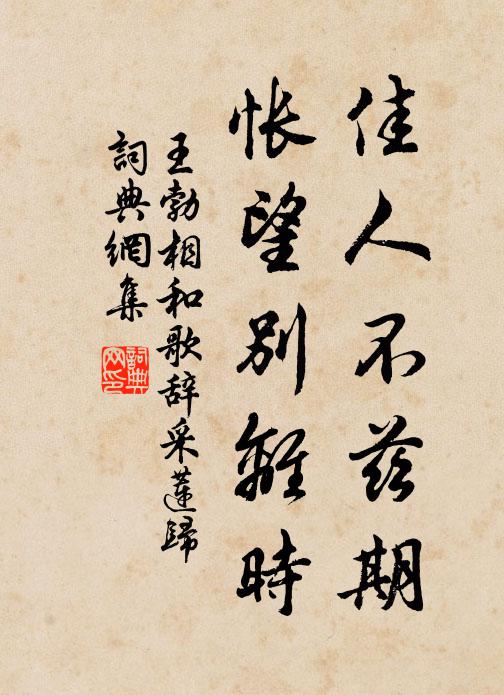 佳人不茲期
悵望別離時
王勃相和歌辞采蓮歸
詞典網集
詞典
网印